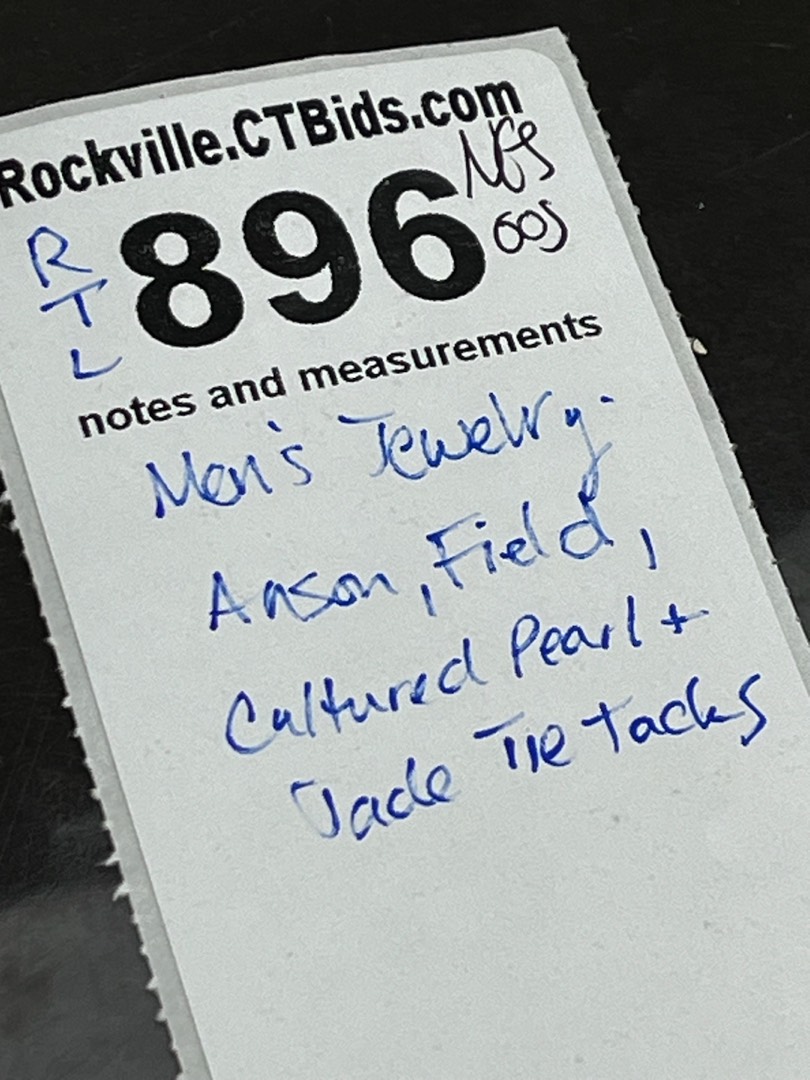 Rockville.CTBids.com
896
R
T
L
notes and measurements
Men's Jewelry.
Anson, Field,
Cultured Pearl +
Jade Tie tacks